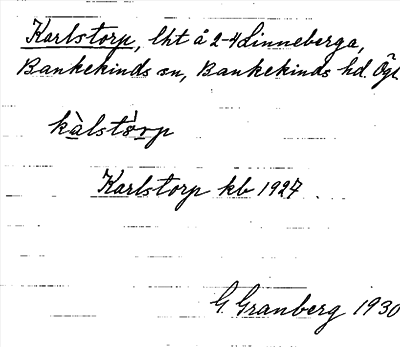 Karlstorp, lht å 2-4 Linneberga,
Bankekinds sn, Bankekinds hd. Ögl
kàlstòrp
Karlstorp kb 1927
G. Granberg 1930